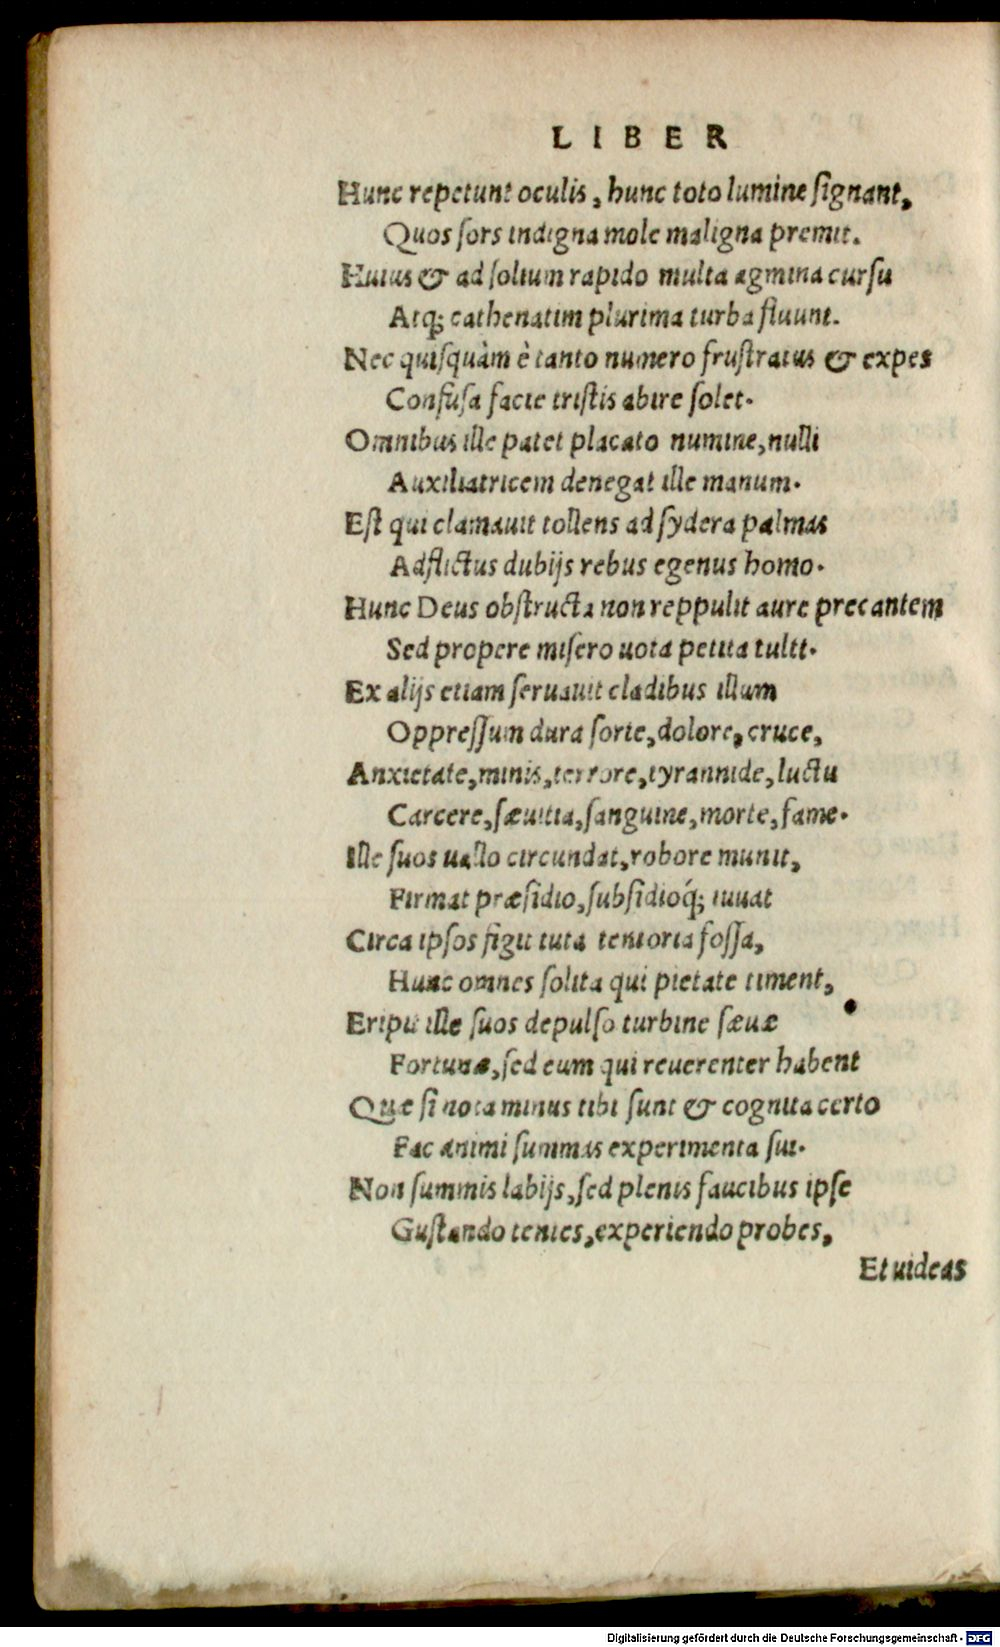 LIBER
Hunc repetunt oculis, hunc toto lumine ſignant,
Quos ſors indigna mole maligna premit.
Huius & ad ſolium rapido multa agmina curſu
Atq; cathenatim plurima turba fluunt.
Nec quiſquàm è tanto numero fruſtratus & expes
Confuſa facie triſtis abire ſolet.
Omnibus ille patet placato numine, nulli
Auxiliatricem denegat ille manum.
Eſt qui clamauit tollens ad ſydera palmas
Adflictus dubijs rebus egenus homo.
Hunc Deus obſtructa non reppulit aure precantem
Sed propere miſero uota petita tulit.
Ex alijs etiam ſeruauit cladibus illum
Oppreſſum dura ſorte, dolore, cruce,
Anxietate, minis, terrore, tyrannide, luctu
Carcere, ſæuitia, ſanguine, morte, fame.
Ille ſuos uallo circundat, robore munit,
Firmat præſidio, ſubſidioq́; iuuat
Circa ipſos figit tuta tentoria foſſa,
Hunc omnes ſolita qui pietate timent,
Eripit ille ſuos depulſo turbine ſæuæ
Fortunæ, ſed eum qui reuerenter habent
Quæ ſi nota minus tibi ſunt & cognita certo
Fac animi ſummas experimenta ſui.
Non ſummis labijs, ſed plenis faucibus ipſe
Guſtando tentes, experiendo probes,
Et uideas
Digitalisierung gefördert durch die Deutsche Forschungsgemeinschaft - DFG